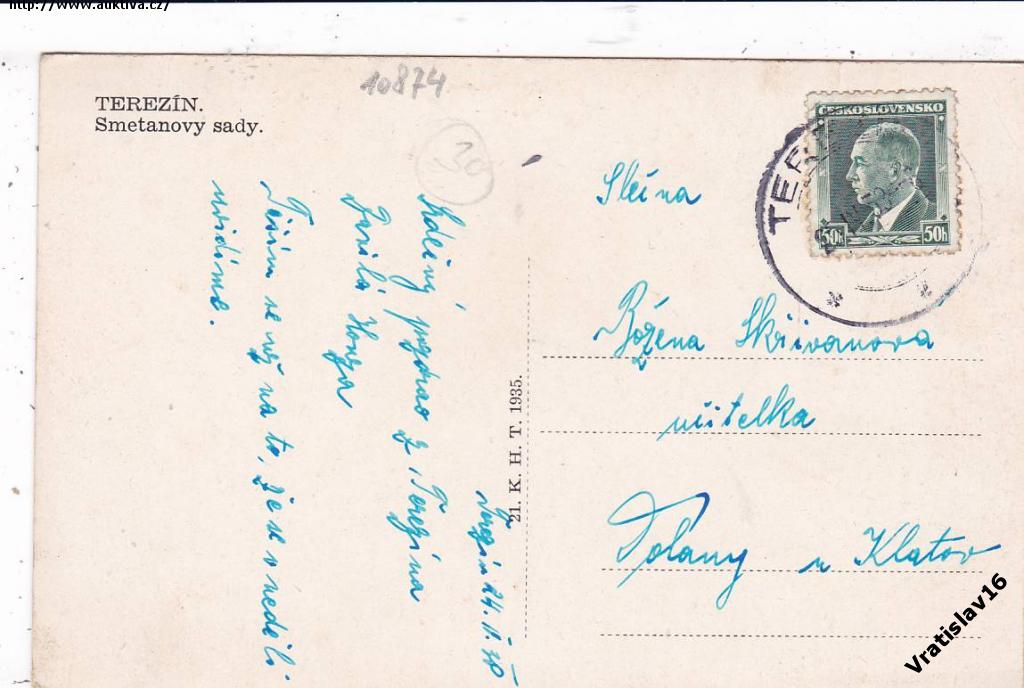 http://www.auktiva.cz/
10874
TEREZÍN.
Smetanovy sady.
30
ČESKOSLOVENSKO
50h 50h
TER
Terezín 24. II. 38
Srdečný pozdrav z Terezína
Honza
Těším se již na to, že se v neděli
uvidíme.
21. K. H. T. 1935.
Slečna
Božena Skřivanova
učitelka
Dolany u Klatov
Vratislav16